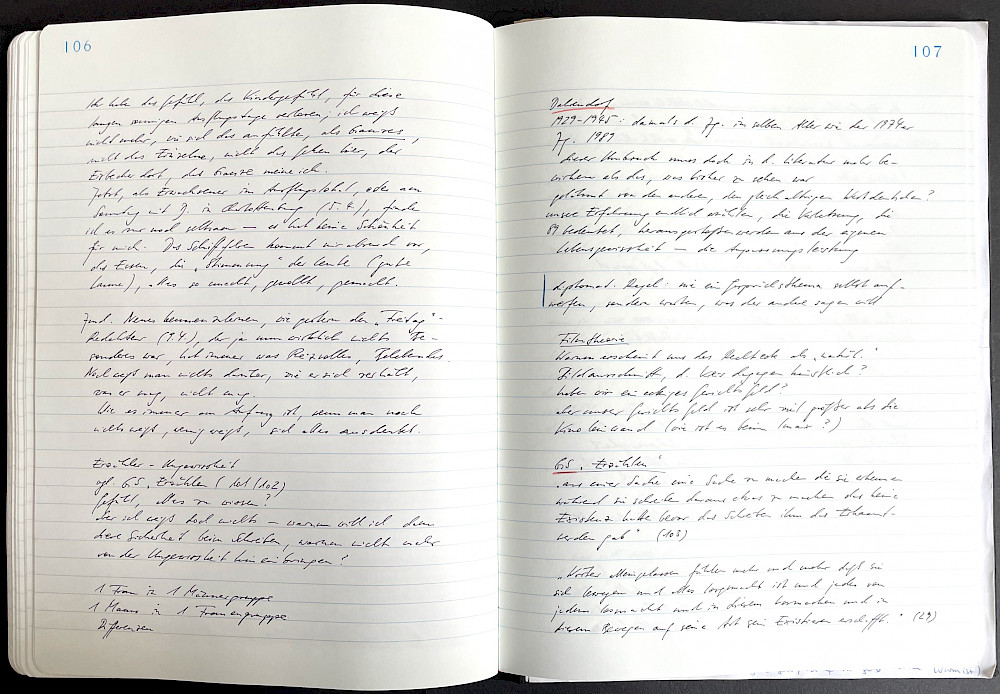 106
Ich habe das Gefühl, das Kindergefühl, für diese
sonnigen Ausflugstage verloren, ich weiß
nicht mehr, wie sich das anfühlte, als Ganzes,
nicht das Einzelne, nicht das Gehen hier, der
Erdbeer dort, das Ganze meine ich.
Jetzt, als Erwachsener im Ausflugslokal, oder am
Sonntag mit J. in Charlottenburg (5.4.), finde
ich es nur noch seltsam – es hat keine Schönheit
für mich. Das Schifffahren kommt mir albern vor,
das Essen, die „Stimmung" der Leute (gute
Laune), alles so gemacht, gewollt, gemischt.
Jmd. Neues kennenzulernen, wie gestern den „Freitag"-
Redakteur (9.4.), der ja nun wirklich nichts Be-
sonderes war, hat immer was Reizvolles, Belebendes.
Noch weiß man nichts darüber, wie er sich verhält,
was er mag, nicht mag.
Wie es immer am Anfang ist, wenn man noch
nichts weiß, wenig weiß, sich alles ausdenkt.
Erzähler – Ungewissheit
vgl. GS „Erzählen" (102)
Gefühl, alles zu wissen?
Aber ich weiß doch nichts – warum will ich dann
diese Sicherheit beim Schreiben, warum nicht mehr
von der Ungewissheit hineinbringen?
1 Frau in 1 Männergruppe
1 Mann in 1 Frauengruppe
Differenzen
107
1929–1945: damals d. Jg. im selben Alter wie der 1974er
Jg. 1989
dieser Umbruch muss doch in d. Literatur mehr be-
wirken als das, was bisher zu sehen war
gelähmt von den anderen, den gleichaltrigen Westdeutschen?
unsere Erfahrung endlich erzählen, die Verletzung, die
89 bedeutet, herausgerissen werden aus der eigenen
Lebensgewissheit – die Anpassungsleistung
diplomat. Regel: nie ein Gesprächsthema selbst auf-
werfen, sondern warten, was der andere sagen will
Filmtheorie
Warum erscheint uns das Rechteck als „natürl."
Bildausschnitt, d. Kreis dagegen künstlich?
haben wir ein eckiges Gesichtsfeld?
aber unser Gesichtsfeld ist sehr viel größer als die
Kinoleinwand (wie ist es beim Imax?)
GS „Erzählen"
„aus einer Sache eine Sache zu machen die sie erkennen
während sie schreiben daraus etwas zu machen das keine
Existenz hatte bevor das Schreiben ihm das Erkannt-
werden gab" (103)
fühlen mehr und mehr daß sie
sich bewegen und alles losgemacht ist und jedes von
jedem losgemacht und in diesem Losmachen und in
diesem Bewegen auf seine Art sein Existieren erschafft." (29)